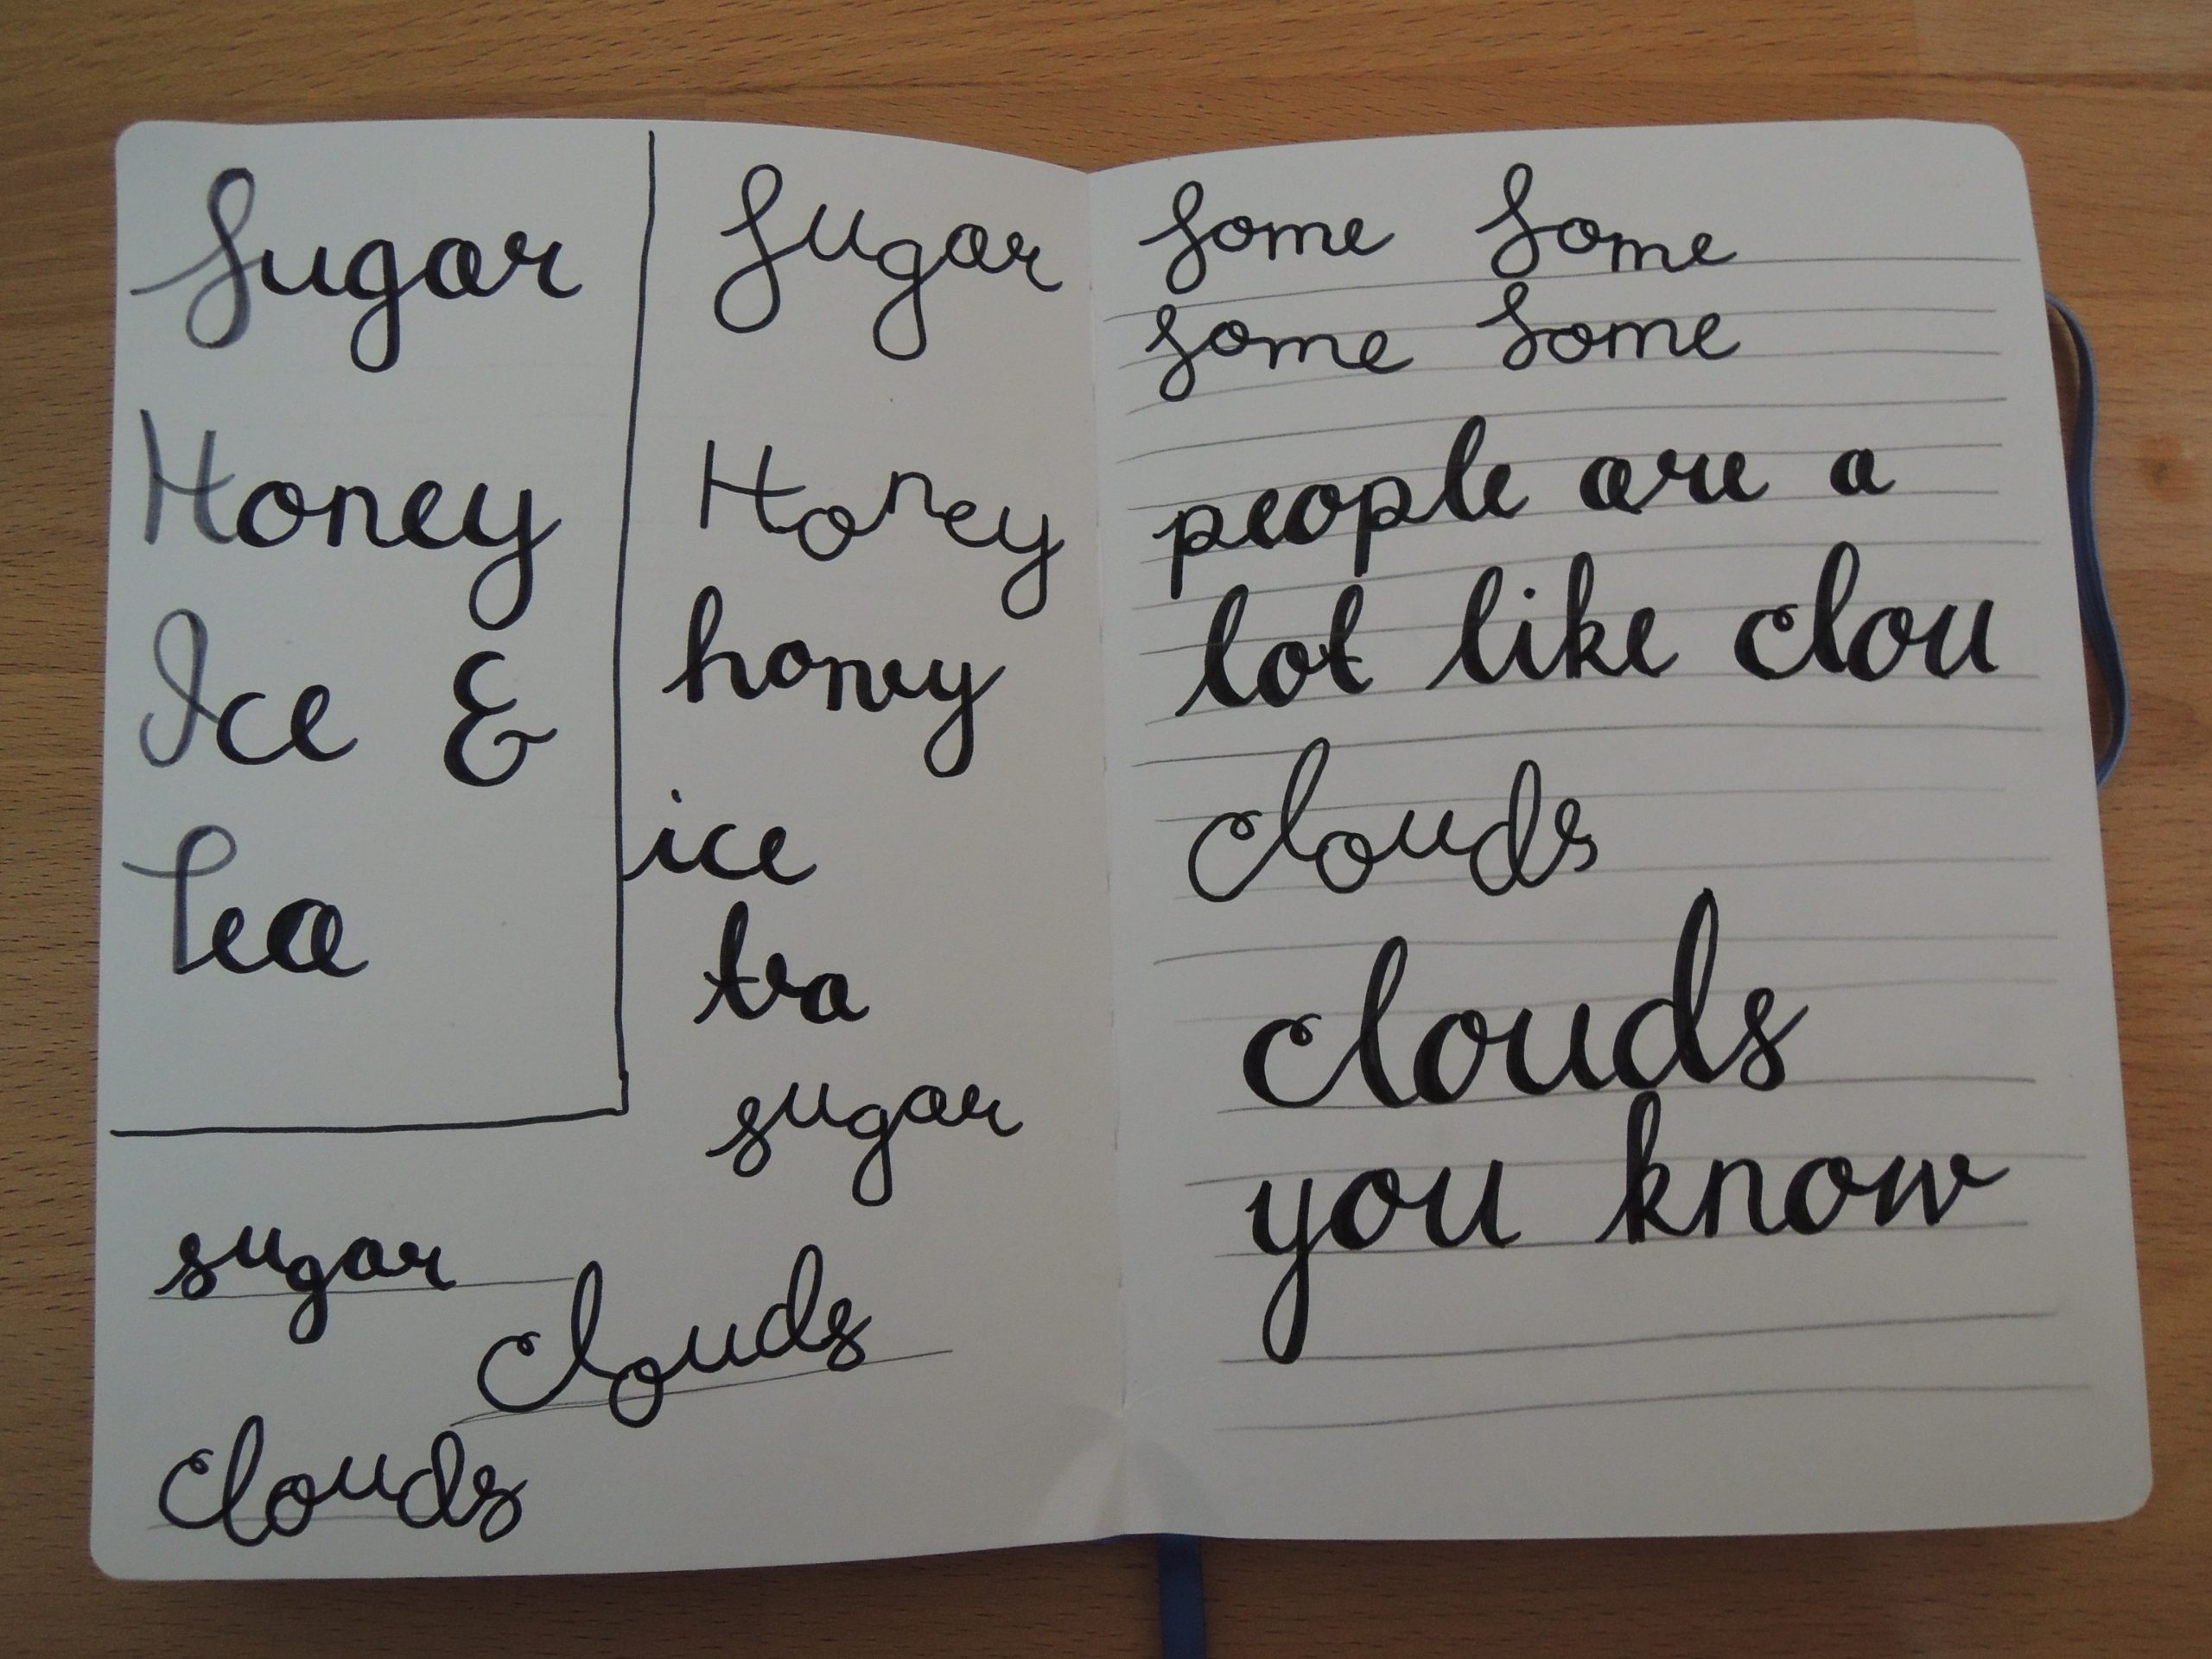 Sugar
Honey
Ice &
Tea
Sugar
Honey
honey
ice
tea
sugar
sugar
clouds
clouds
Some Some
Some Some
people are a
lot like clou
clouds
clouds
you know